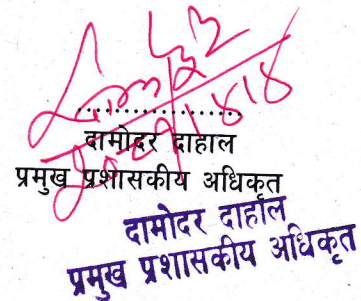 ....................
दामोदर दाहाल
प्रमुख प्रशासकीय अधिकृत
दामोदर दाहाल
प्रमुख प्रशासकीय अधिकृत